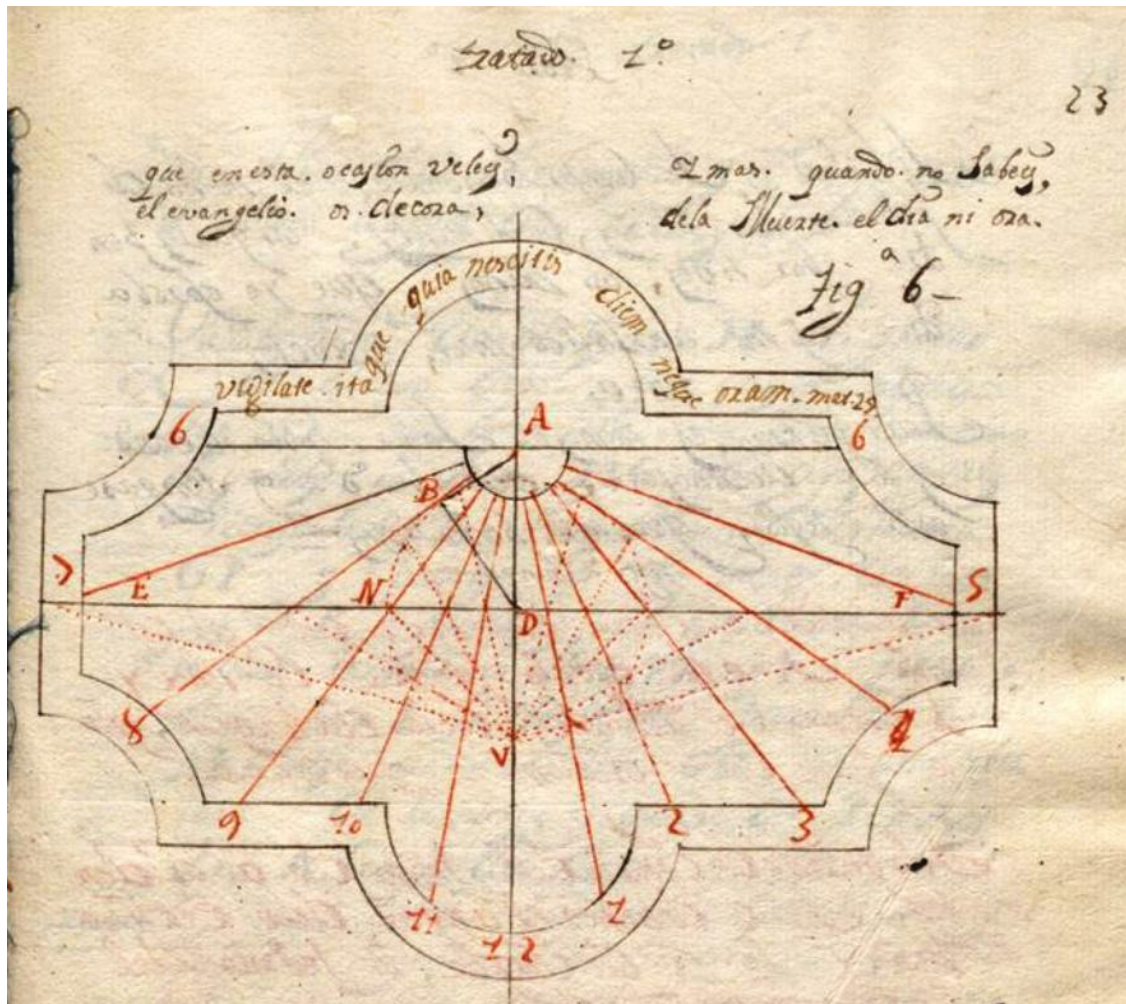 tratado. 1º
23
que en esta. ocasion veleys,
el evangelio. os. decora,
Y mas. quando. no sabeys,
dela Muerte. el dia ni ora.
Figª 6
vigilate. ita que quia nescitis diem neque oram. mat 29
6
A
6
B
7
E
N
D
F
5
V
8
4
9
10
2
3
11
12
1